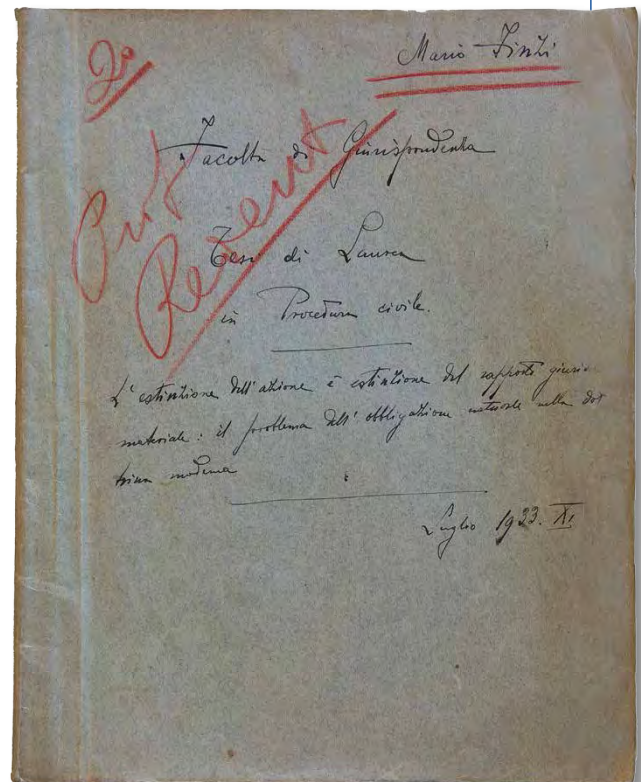 2°
Mario Finzi
Facoltà di Giurisprudenza
Prof
Redenti
Tesi di Laurea
in Procedura civile.
L'estinzione dell'azione è estinzione del rapporto giuri
materiale: il problema dell'obbligazione naturale nella dot
trina moderna
Luglio 1933. XI.